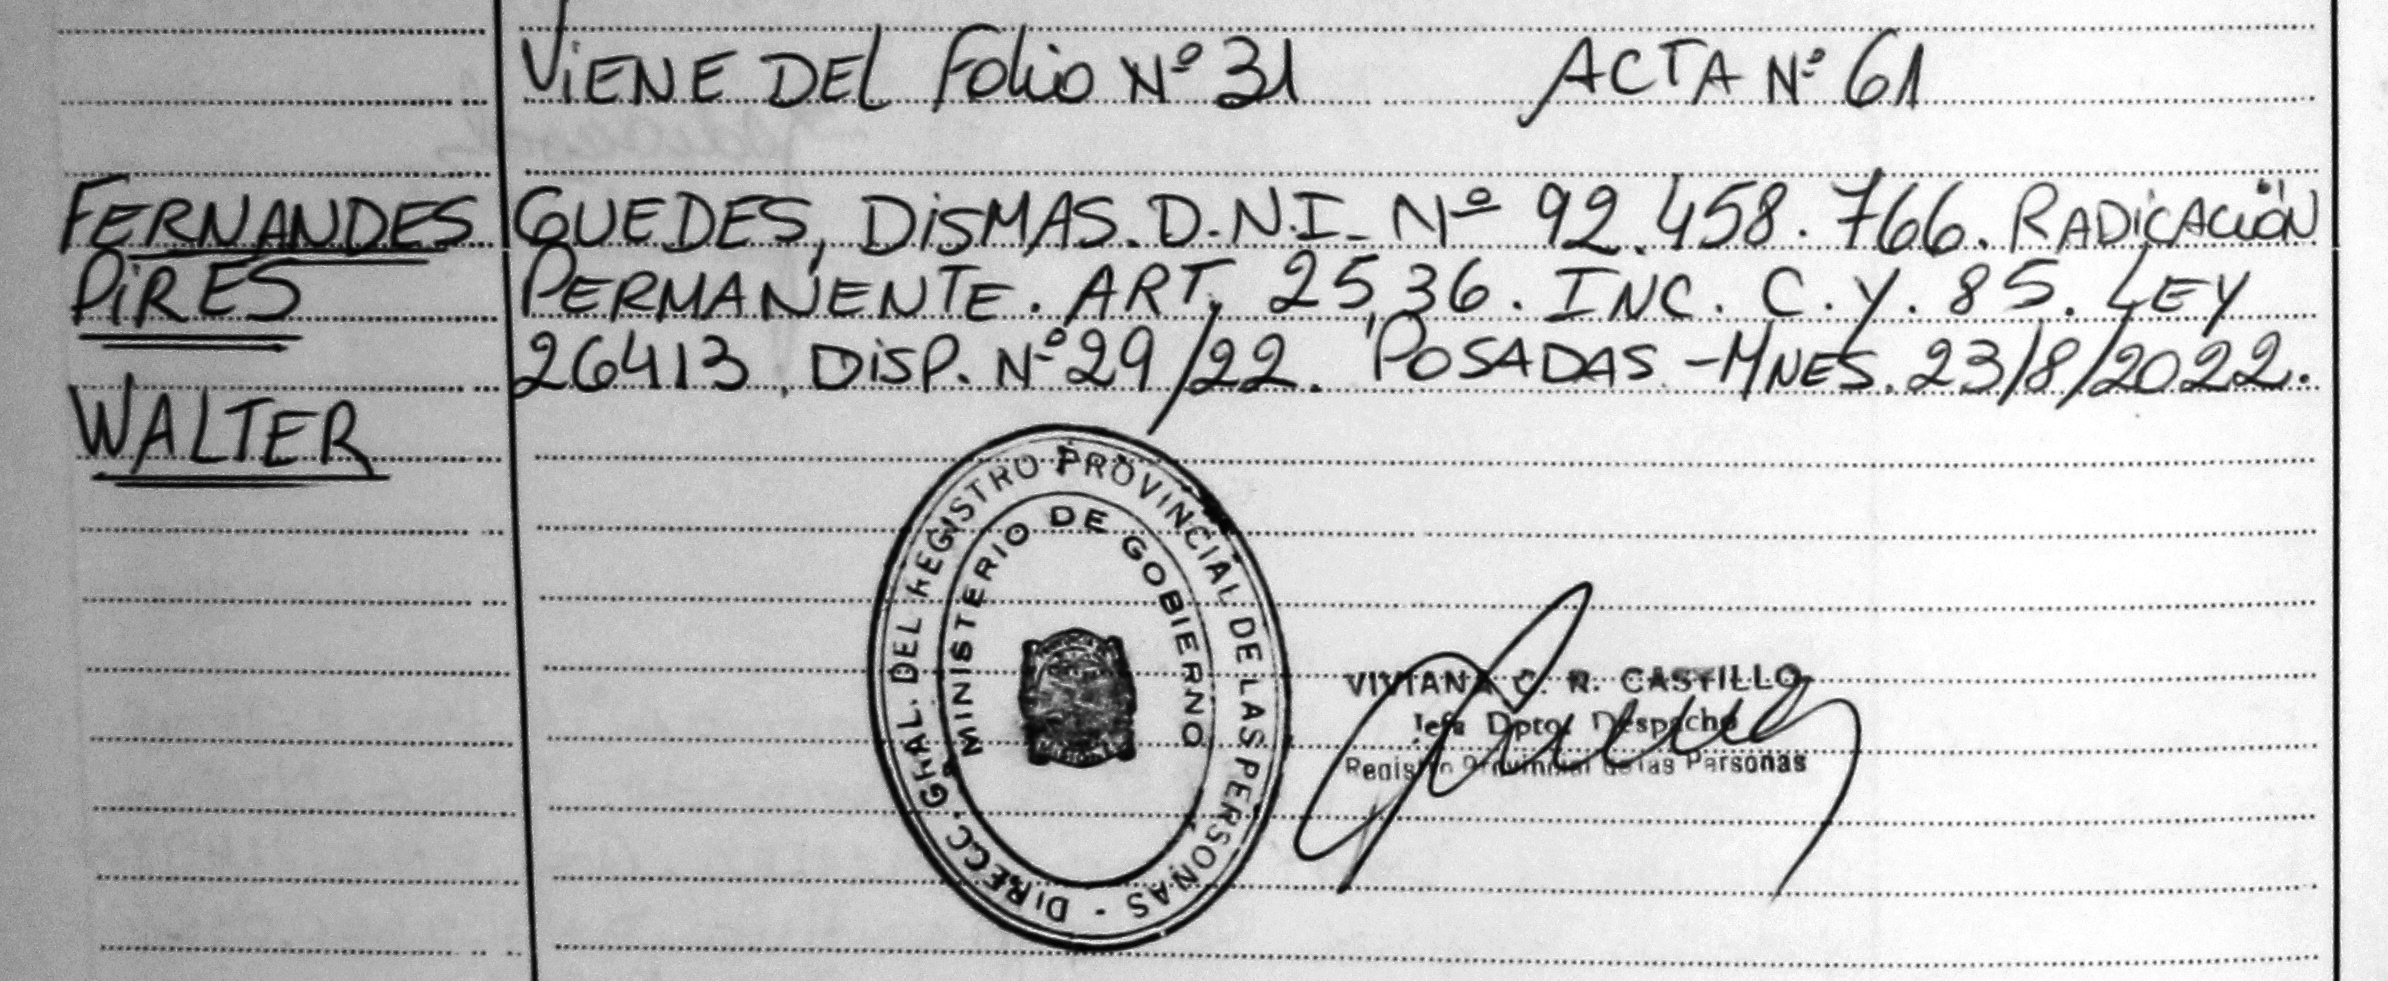 ViENE DEL Folio Nº 31 ACTA Nº 61
FERNANDES
PiRES
WALTER
GUEDES, DiSMAS. D.N.I. Nº 92.458.766. RADiCACióN
PERMANENTE. ART. 25,36. INC. C.Y. 85. LEY
26413. DiSP. Nº 29/22. POSADAS - MNES. 23/8/2022.
DIRECC. GRAL. DEL REGISTRO PROVINCIAL DE LAS PERSONAS -
MINISTERIO DE GOBIERNO
VIVIANA C. R. CASTILLO
Jefa Dpto. Despacho
Registro Provincial de las Personas